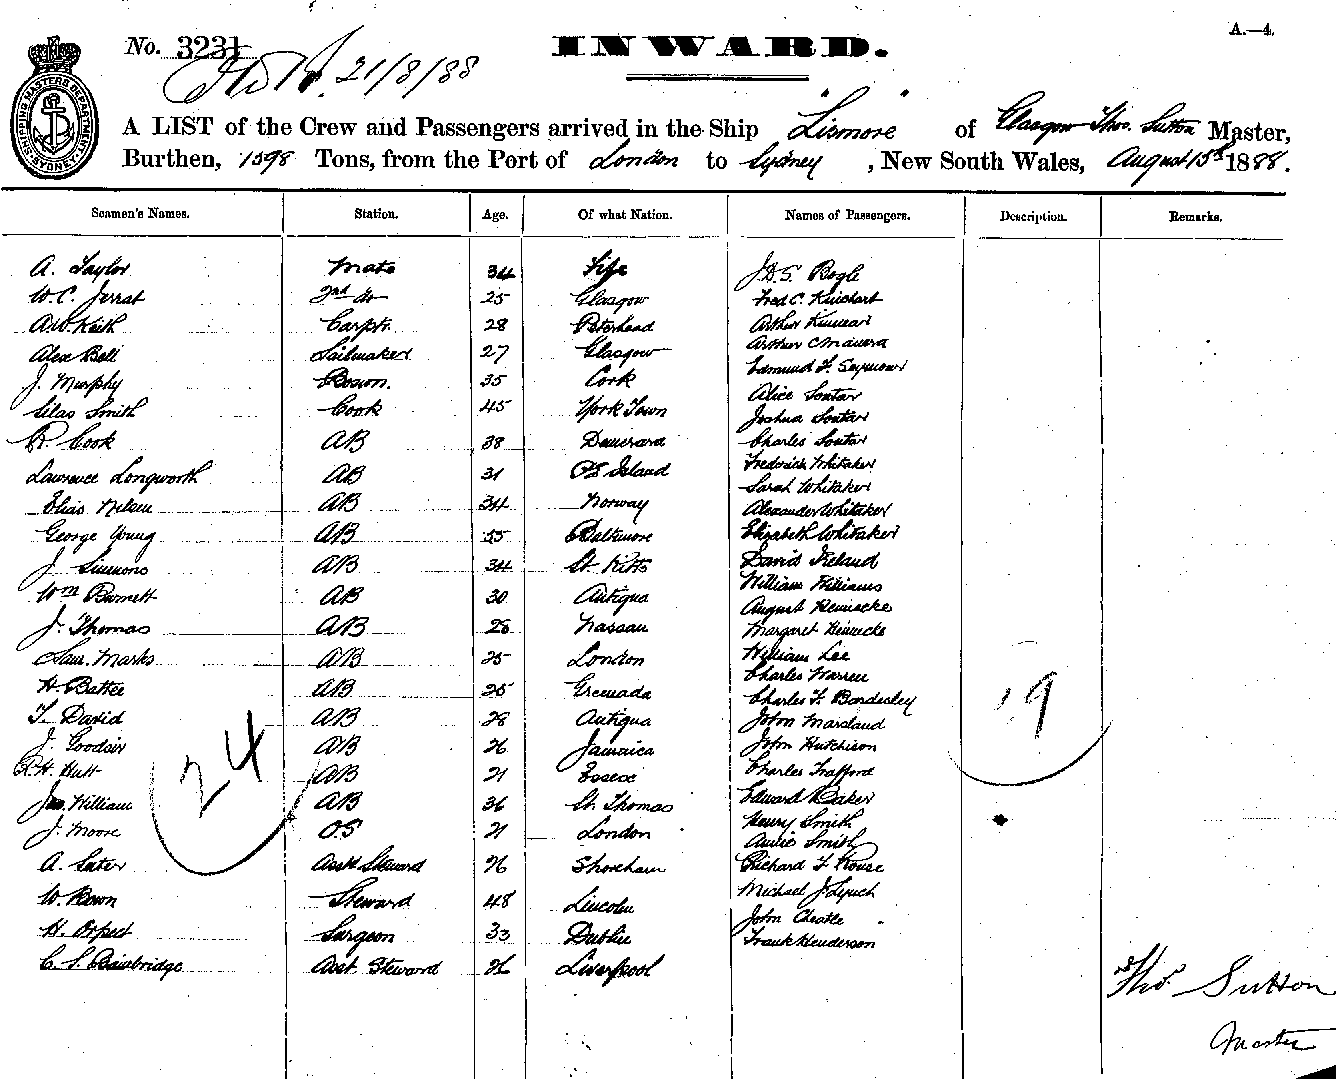 A.—4.
No. 3231
INWARD.
21/8/88
SHIPPING MASTERS DEPARTMENT SYDNEY
A LIST of the Crew and Passengers arrived in the Ship "Lismore" of Glasgow Thos. Sutton Master,
Burthen, 1598 Tons, from the Port of London to Sydney, New South Wales, August 15th 1888.
Seamen's Names. Station. Age. Of what Nation. Names of Passengers. Description. Remarks.
A. Taylor Mate 34 Fife J.D.S. Bogle
W.C. Jerrat 2nd do 25 Glasgow Fred C.
A.W. Keith Carptr. 28 Peterhead Arthur
Alex Bell Sailmaker 27 Glasgow Arthur
J. Murphy Bosun. 35 Cork Edmund F. Seymour
Silas Smith Cook 45 York Town Alice Soutar
R Cook AB 38 Demerara Joshua Soutar
Lawrence Longworth AB 31 Island Charles Soutar
Elias Nelson AB 34 Norway Frederick Whitaker
George Young AB 55 Baltimore Sarah Whitaker
J. Simmons AB 34 St. Kitts Alexander Whitaker
Wm Burnett AB 30 Antigua Elizabeth Whitaker
J. Thomas AB 28 Nassau David Ireland
Sam. Marks AB 25 London William Williams
H. Battee AB 25 Grenada August Heinecke
T. David AB 28 Antigua Margaret Heinecke
J. Goodair AB 26 Jamaica William Lee
R.H. Hutt AB 21 Essex Charles Warren
Jas. William AB 36 St. Thomas Charles F. Bardesley
J. Moore O.S 21 London John Marsland
A. Suter Asst Steward 26 Shoreham John Hutchison
W. Bown Steward 48 Lincoln Charles Trafford
H. Orpet Surgeon 33 Dublin Edward Baker
C.S. Bainbridge Asst Steward 26 Liverpool Henry Smith
Smith
Richard F. Rouse
Michael J. Lynch
John Cheatle
Frank Henderson
24
9
Thos. Sutton
Master